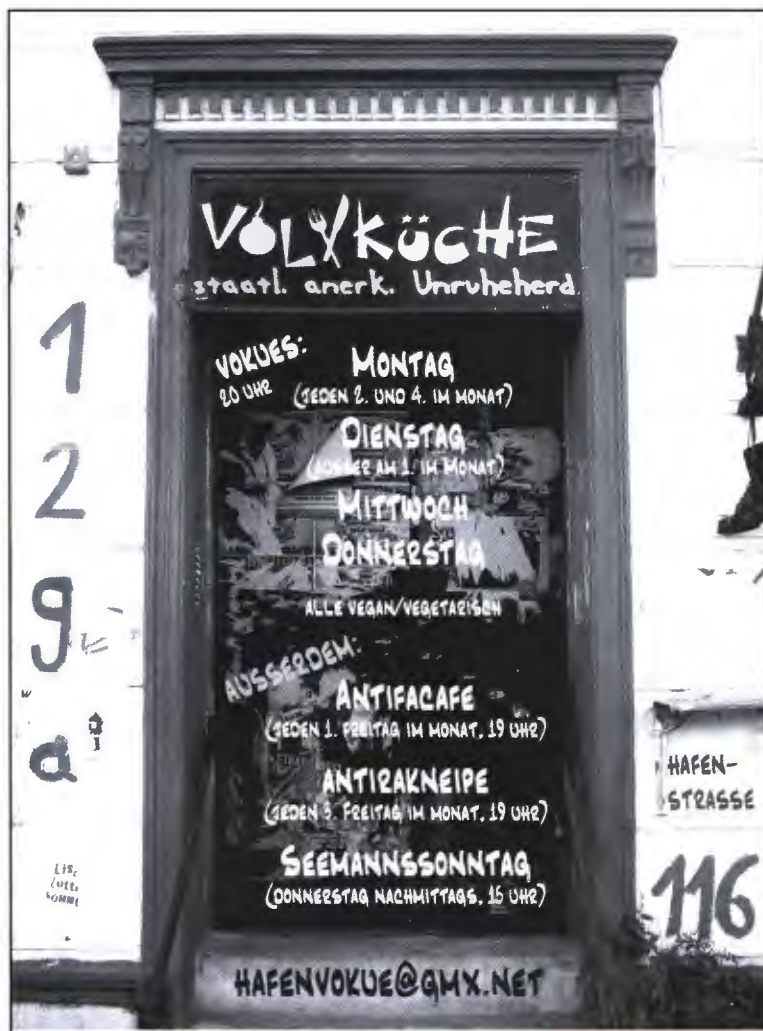 VOLXKÜCHE
staatl. anerk. Unruheherd
VOKUES:
20 UHR
MONTAG
(JEDEN 2. UND 4. IM MONAT)
DIENSTAG
(AUSSER AM 1. IM MONAT)
MITTWOCH
DONNERSTAG
ALLE VEGAN/VEGETARISCH
AUSSERDEM:
ANTIFACAFE
(JEDEN 1. FREITAG IM MONAT, 19 UHR)
ANTIRAKNEIPE
(JEDEN 3. FREITAG IM MONAT, 19 UHR)
SEEMANNSSONNTAG
(DONNERSTAG NACHMITTAGS, 15 UHR)
HAFENVOKUE@GMX.NET
1
2
g
a
HAFEN-
STRASSE
116